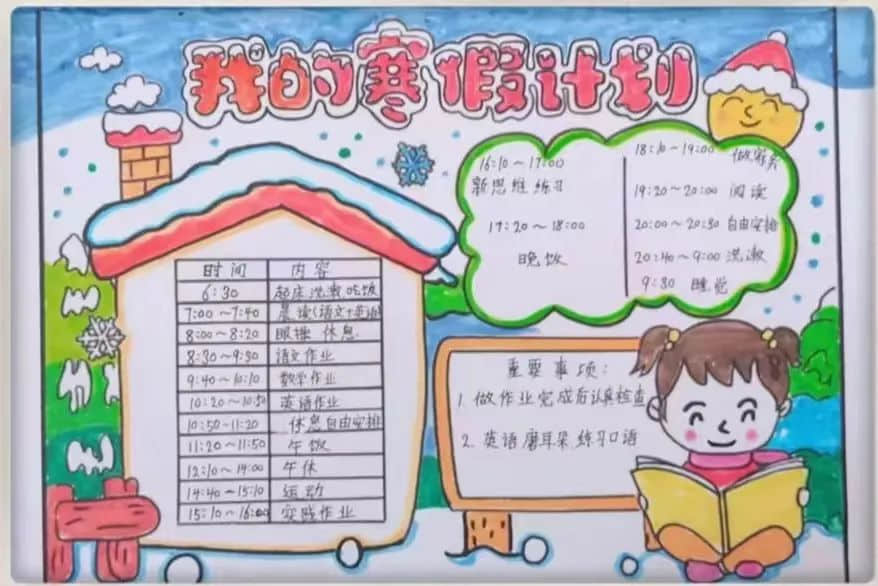 我的寒假计划
时间 内容
6:30 起床洗漱吃饭
7:00~7:40 晨读(语文+英语)
8:00~8:20 眼操 休息
8:30~9:30 语文作业
9:40~10:10 数学作业
10:20~10:50 英语作业
10:50~11:20 休息自由安排
11:20~11:50 午饭
12:10~14:00 午休
14:40~15:10 运动
15:10~16:00 实践作业
16:10~17:00
新思维练习
17:20~18:00
晚饭
18:10~19:00 做家务
19:20~20:00 阅读
20:00~20:30 自由安排
20:40~9:00 洗漱
9:30 睡觉
重要事项:
1. 做作业完成后认真检查
2. 英语磨耳朵,练习口语